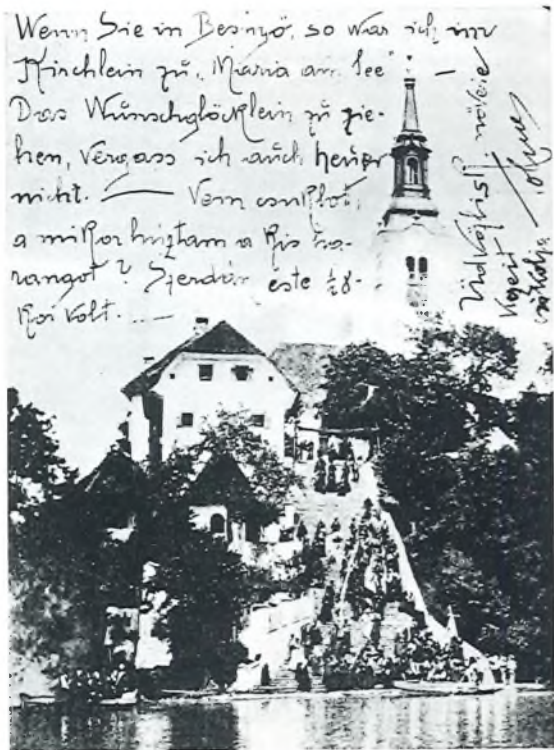 Wenn Sie in Besnyö, so war ich im
Kirchlein zu „Maria am See" —
Das Wunschglöcklein zu zie-
hen, vergass ich auch heuer
nicht. — Nem csuklott,
a mikor húztam a kis ha-
rangot? Szerdán este ½8-
kor volt. —
kezeit